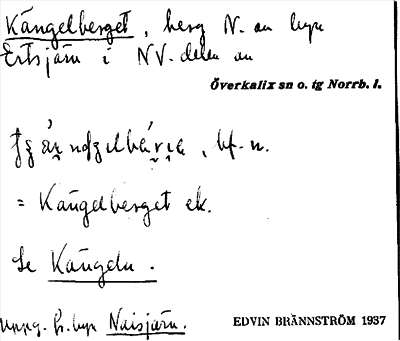 Kängelberget, berg N. om byn
Ertsjärv i NV. delen av
Överkalix sn o. tg Norrb. l.
, bf. n.
= Kängelberget ek.
Se Kängeln.
uppg. fr. byn Naisjärv.
EDVIN BRÄNNSTRÖM 1937